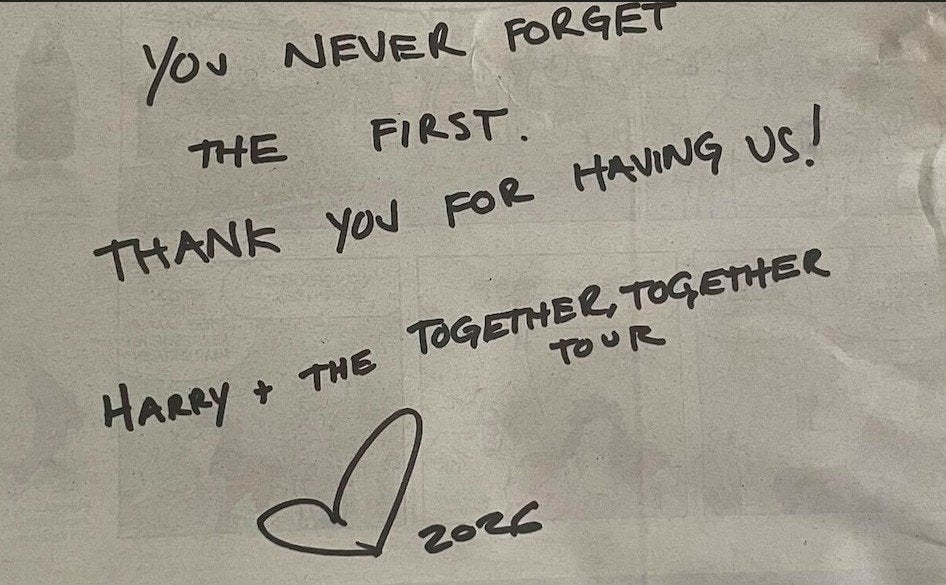 YOU NEVER FORGET
THE FIRST.
THANK YOU FOR HAVING US!
HARRY + THE TOGETHER, TOGETHER
TOUR
2026